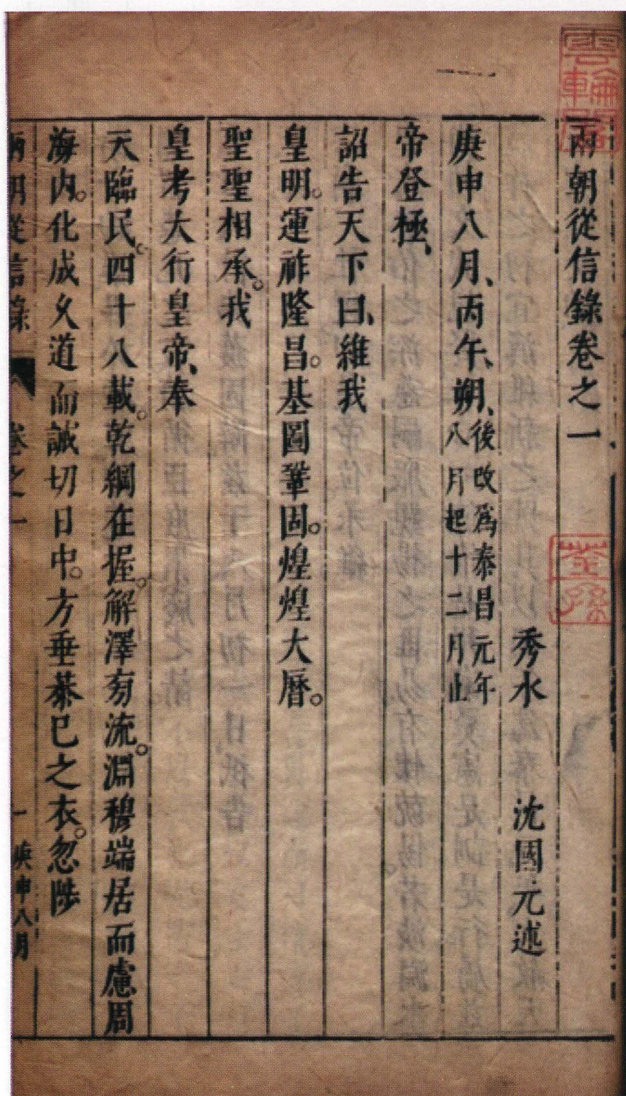 兩朝從信錄卷之一
秀水 沈國元述
庚申八月、丙午、朔、後改爲泰昌元年八月起十二月止
帝登極、
詔告天下曰、維我
皇明。運祚隆昌。基圖鞏固。煌煌大曆。
聖聖相承。我
皇考大行皇帝、奉
天臨民。四十八載。乾綱在握。解澤旁流。淵穆端居而慮周
海內。化成久道而誠切日中。方垂恭已之衣。忽陟
兩朝從信錄 卷之一 一 庚申八月